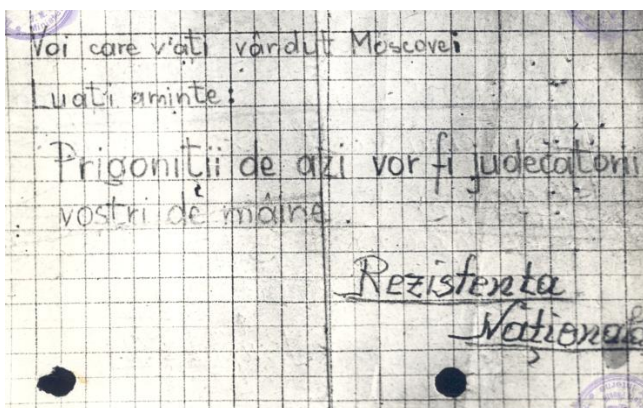 Voi care v'ați vândut Moscovei
Luați aminte:
Prigoniții de azi vor fi judecătorii
voștri de mâine.
Rezistența
Națională